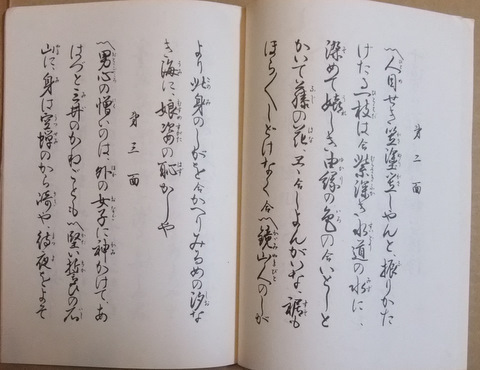 第二面
〽人目せき笠塗笠しやんと、振りかた
げたる一枝は合紫深き水道の水に、
染めて嬉しき由縁の色の合いとしと
かいて藤の花、エヽ合しよんがいな、裾も
ほら〳〵しどけなく合〽鏡山人のしが
より此身のしがを合かへりみるめの汐な
き海に、娘姿の恥かしや
第三面
〽男心の憎いのは、外の女子に神かけて、あ
はづと三井のかねごとも〽堅い誓ひの石
山に、身は空蝉のから崎や、待夜をよそ